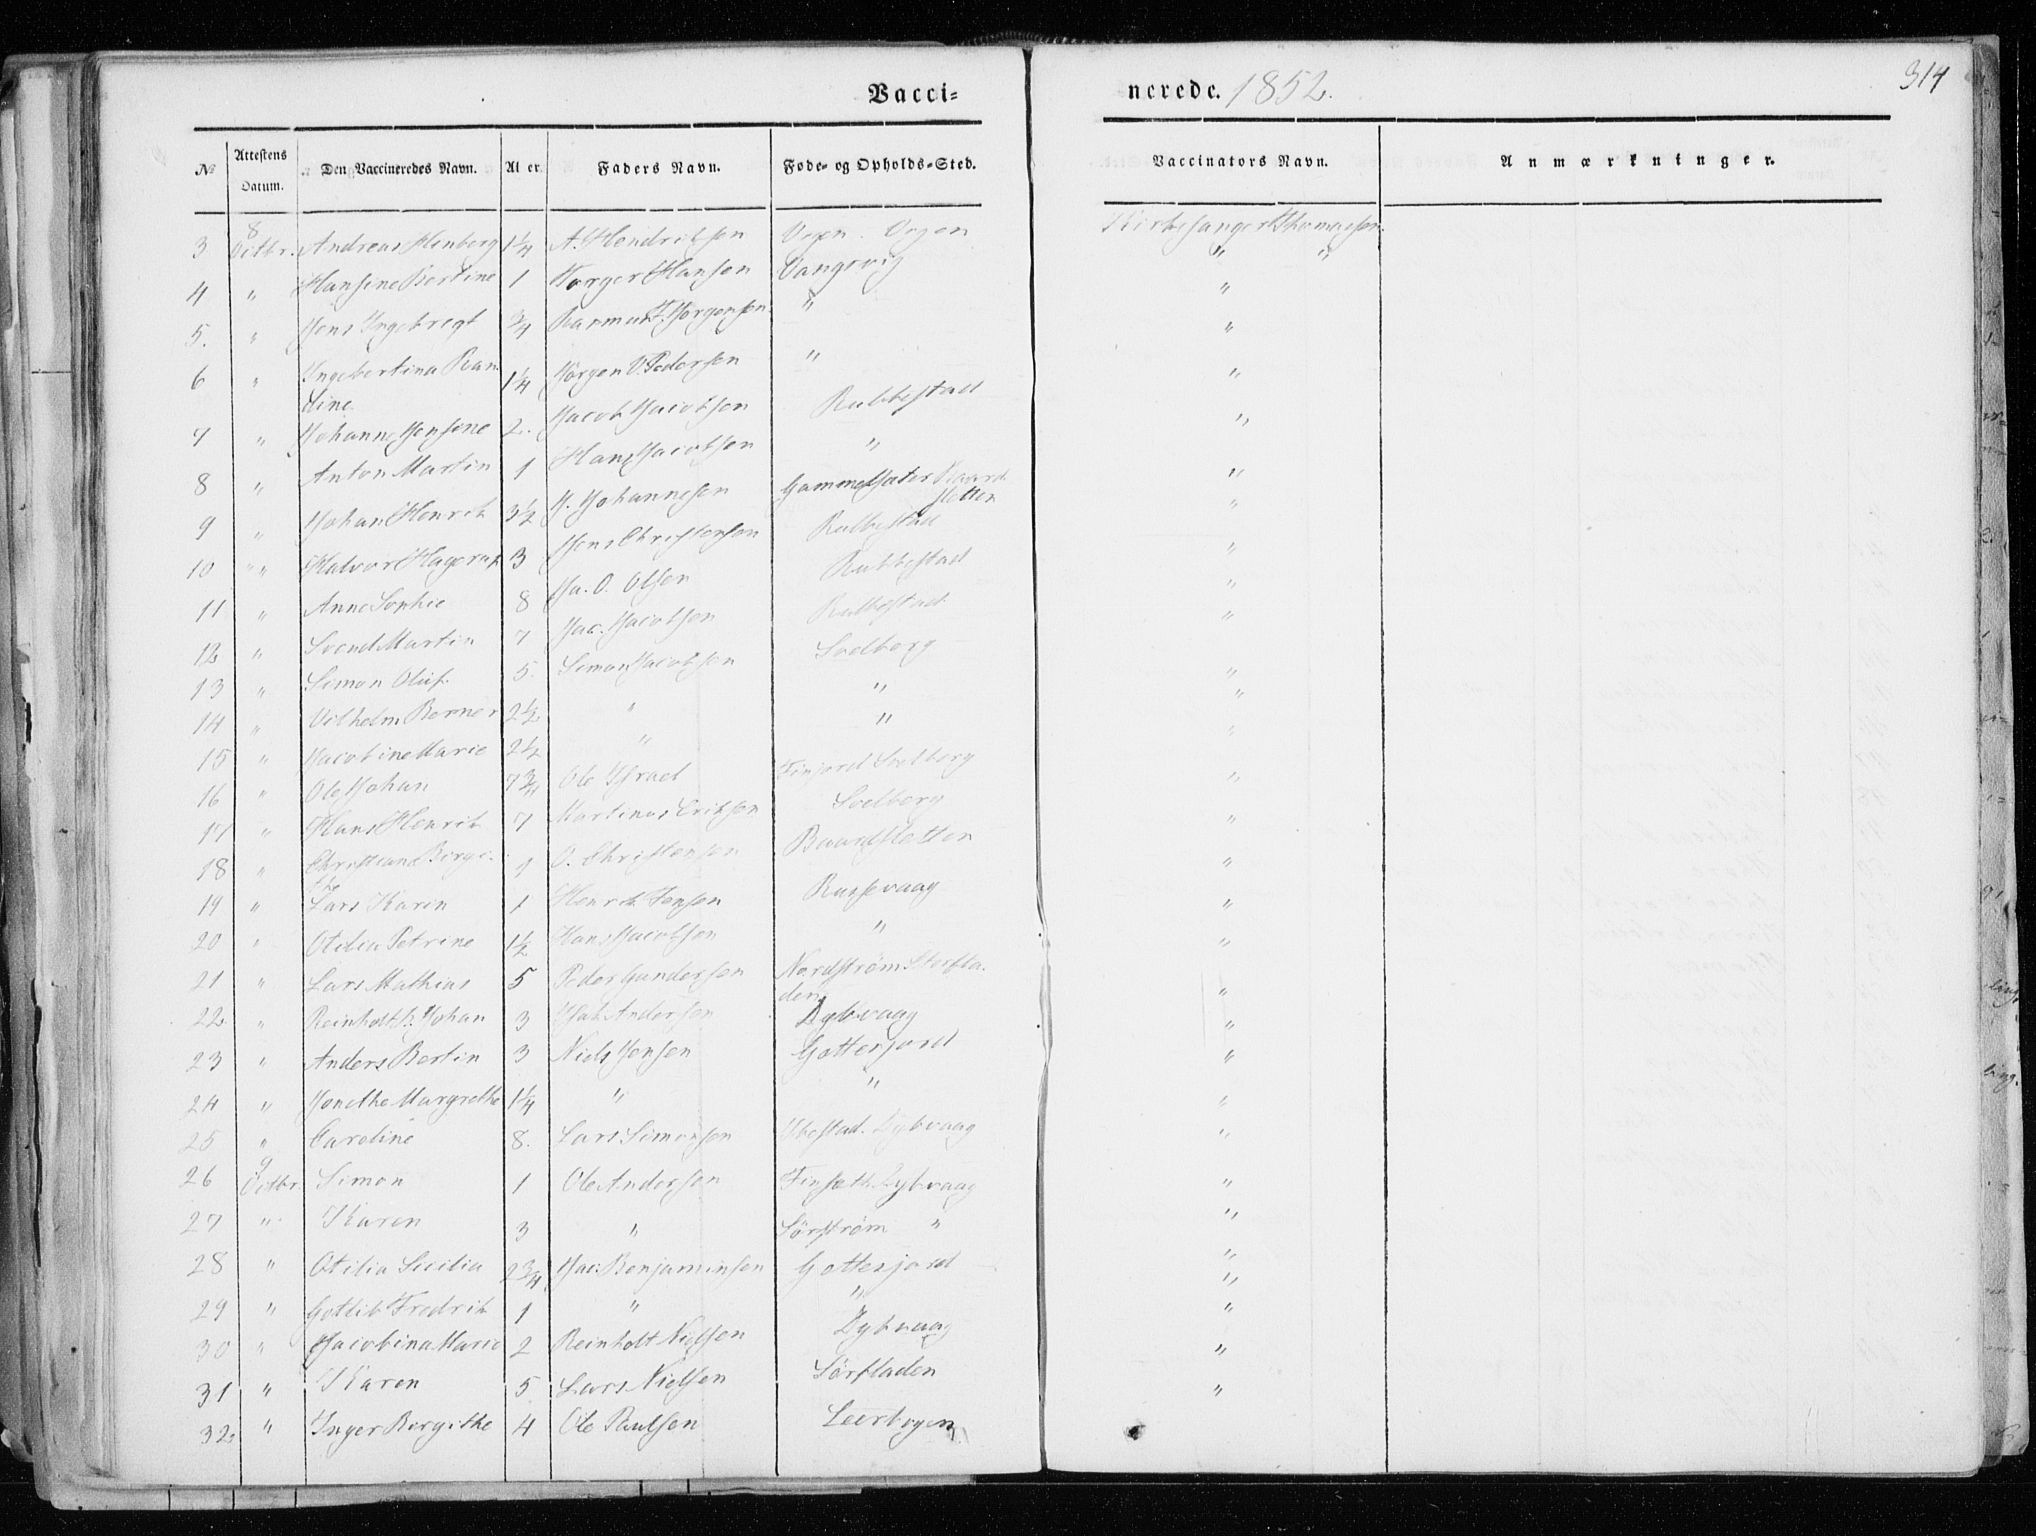 314
Vacci- nerede. 1852.
№ Attestens Datum. Den Vaccineredes Navn. Al er Faders Navn. Føde- og Opholds-Sted. Vaccinators Navn. Anmærkninger.
3 8 Octbr. Andreas Henberg 1¼ A. Hendriksen Vogen Kirkesanger Thomassen
4 " Hansine Bertine 1 Hansen Vangsvig " "
5. " Jens Ingebregt ¾ Rasmus J. Jørgensen " "
6 " Ingebertina Ran- 1¼ Jørgen P. Pedersen " "
dine
7 " Johanne Jensine 2. Jacob Jacobsen Rubbestad "
8 " Anton Martin 1 Hans Jacobsen " "
9 " Johan Henrik 3½ J. Johannesen Baard- "
sletten
10 " " Halvor Hagerup 3 Jens Christensen Rubbestad "
11 " Anne Sophie 8 Ja. O. Olsen Rubbestad "
12 " Svend Martin 7 Jac. Jacobsen Rubbestad "
13 " Simon Oluf 5. Simon Jacobsen Solberg "
14 " Vilhelm Berner 2½ " " "
15 " Jacobine Marie 2½ " " "
16 " Ole Johan 7¾ Ole Israel Finjord Solberg "
17 " Hans Henrik 7 Martinus Eriksen Solberg "
18 " Christiane Birgi- 1 O. Christensen Baardsletten "
the
19 " Lars Karen 1 Henrik Jensen Russevaag "
20 " Otilia Petrine 1½ Hans Jacobsen " "
21 " Lars Mathias 5 Peder Gundersen Nordstrøm Storfla- "
den
22 " Reinholt B. Johan 3 Jak Andersen Dybvaag "
23 " Anders Bertin 3 Niels Jensen Gottesjord "
24 " Jonetha Margrethe 1¼ " " "
25 " Caroline 8. Lars Simonsen Ubestad. Dybvaag "
26 9 Octbr. Simon 1 Ole Andersen Finsæth Dybvaag "
27 " Karen 3 " Sørstrøm " "
28 " Otilia Secilia 2¾ Jac. Benjaminsen Gottesjord "
29 " Gotlib Fredrik 1 " " "
30 " Jacobina Marie 2 Reinholt Nielsen Dybvaag "
31 " Karen 5 Lars Nielsen Sørfladen "
32 " Inger Birgithe 4 Ole Paulsen Leerbogen "